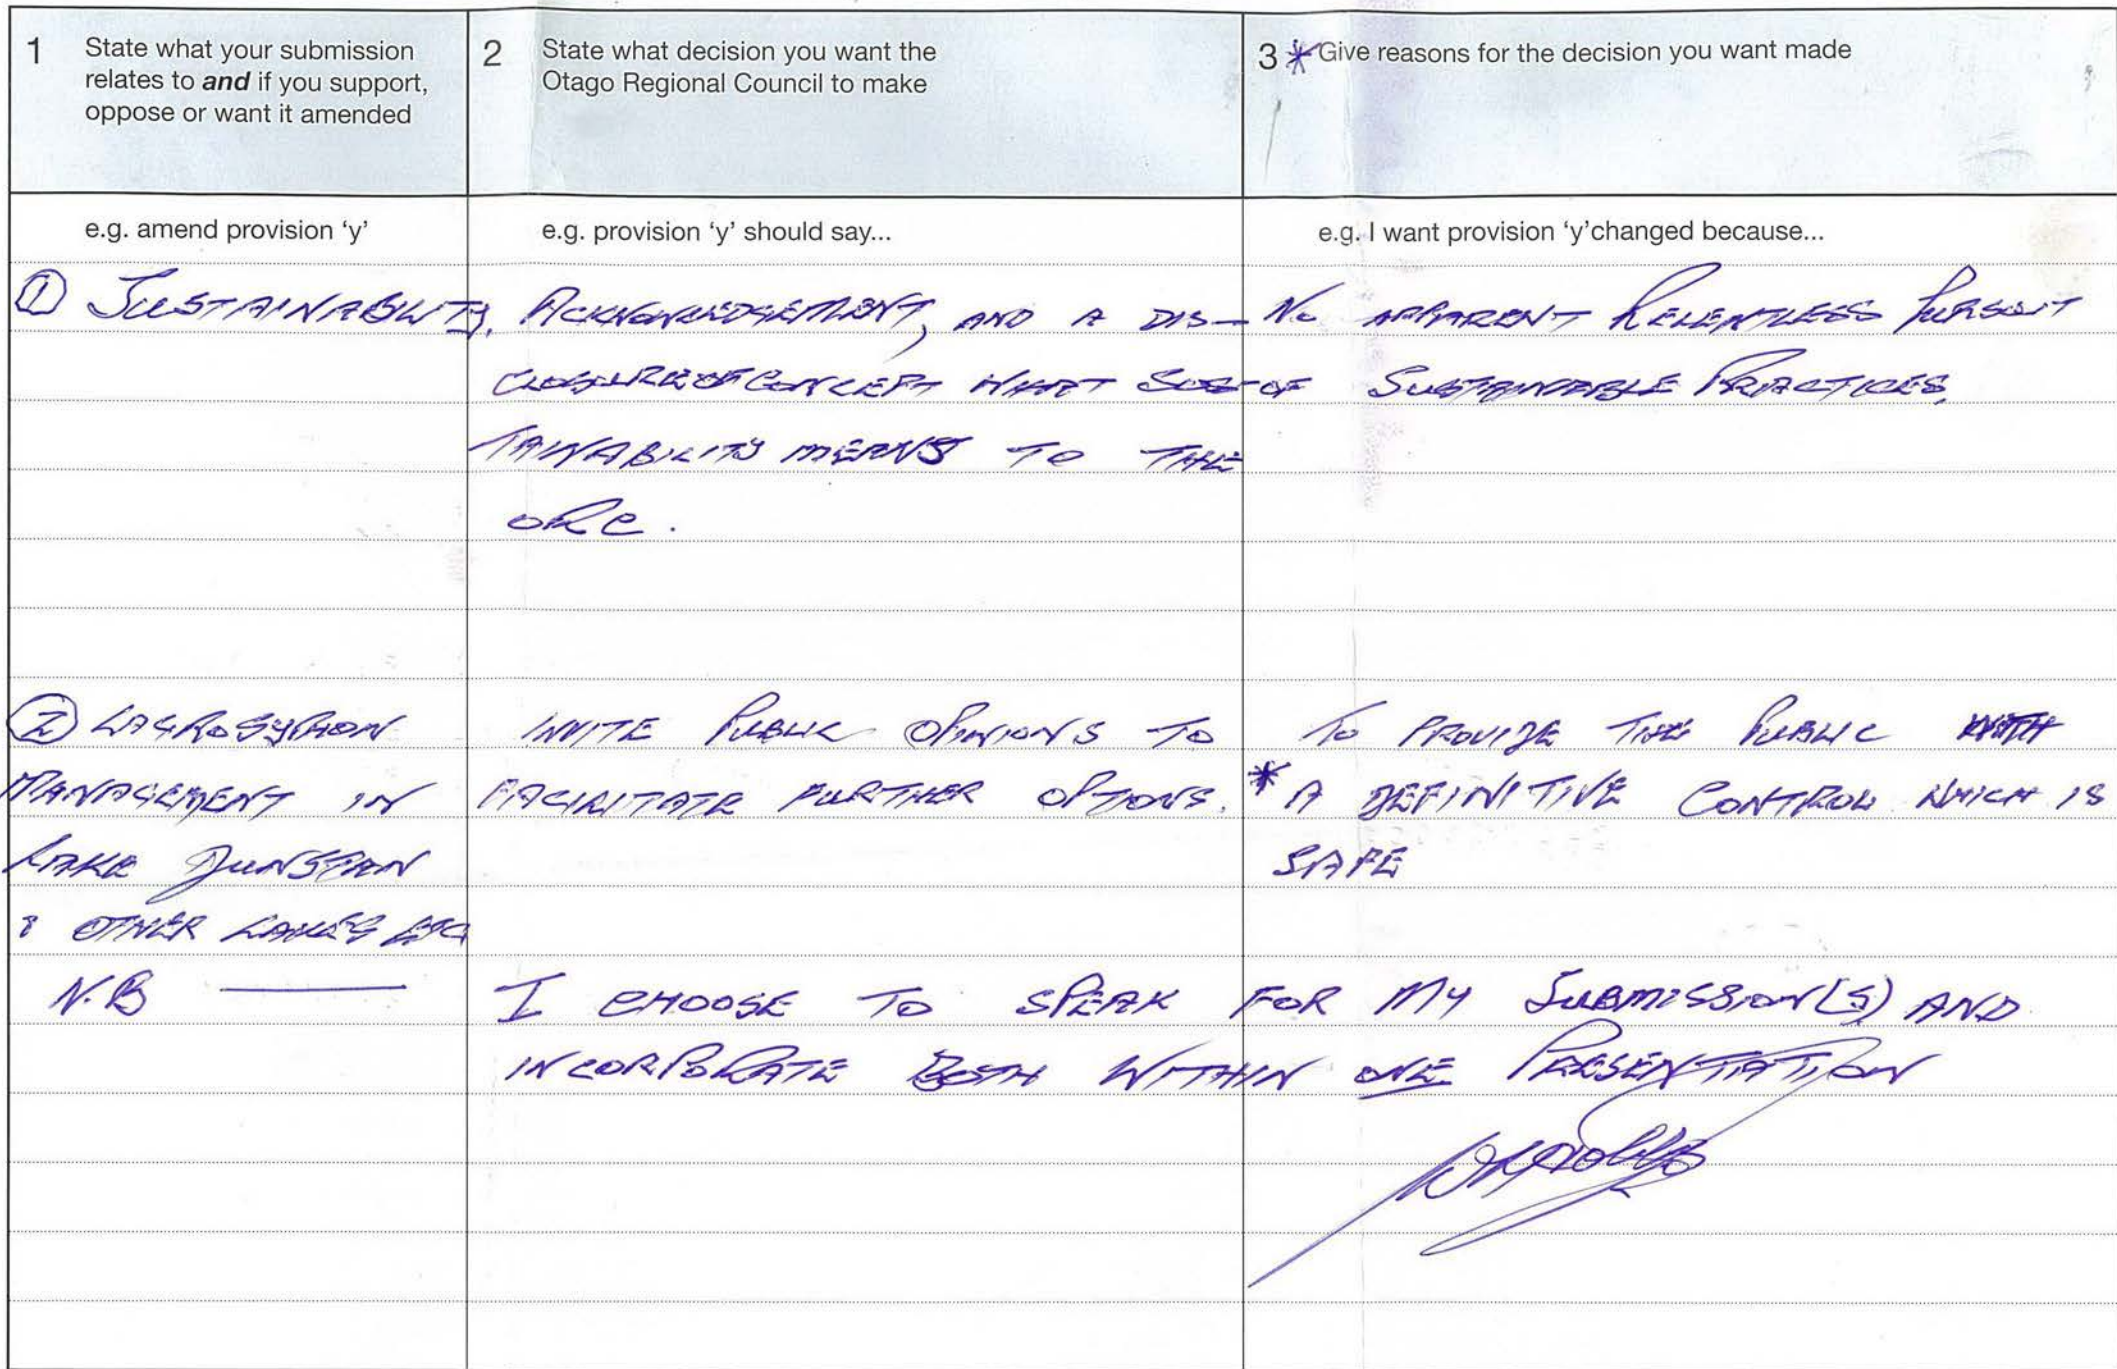 1 State what your submission
relates to and if you support,
oppose or want it amended
2 State what decision you want the
Otago Regional Council to make
3 * Give reasons for the decision you want made
e.g. amend provision ‘y’
e.g. provision ‘y’ should say...
e.g. I want provision ‘y’changed because...
① SUSTAINABILITY.
ACKNOWLEDGEMENT, AND A DIS-
CLOSURE OF CONCEPT WHAT SUS-
TAINABILITY MEANS TO THE
ORC.
NO APPARENT RELENTLESS PURSUIT
OF SUSTAINABLE PRACTICES.
② LAGROSYPHON
MANAGEMENT IN
LAKE DUNSTAN
& OTHER LAKES ETC
INVITE PUBLIC OPINIONS TO
FACILITATE FURTHER OPTIONS.
TO PROVIDE THE PUBLIC WITH
* A DEFINITIVE CONTROL WHICH IS
SAFE
N.B —
I CHOOSE TO SPEAK FOR MY SUBMISSION(S) AND
INCORPORATE BOTH WITHIN ONE PRESENTATION